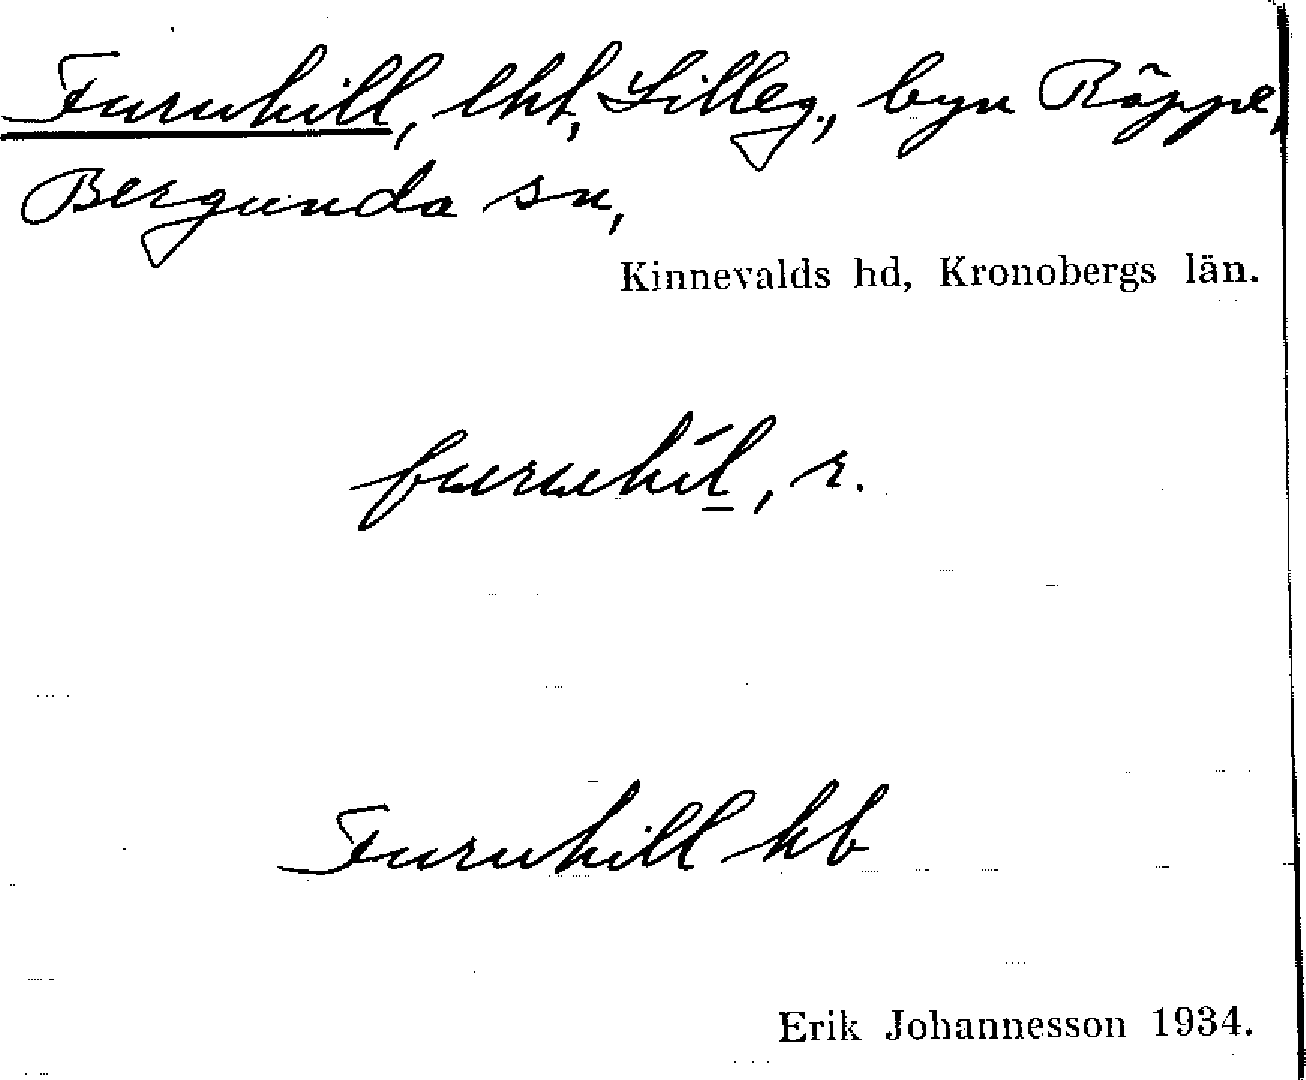 Furuhill, lht, Lilleg., byn Räppe,
Bergunda sn,
Kinnevalds hd, Kronobergs län.
furuhíl, r.
Furuhill kb
Erik Johannesson 1934.